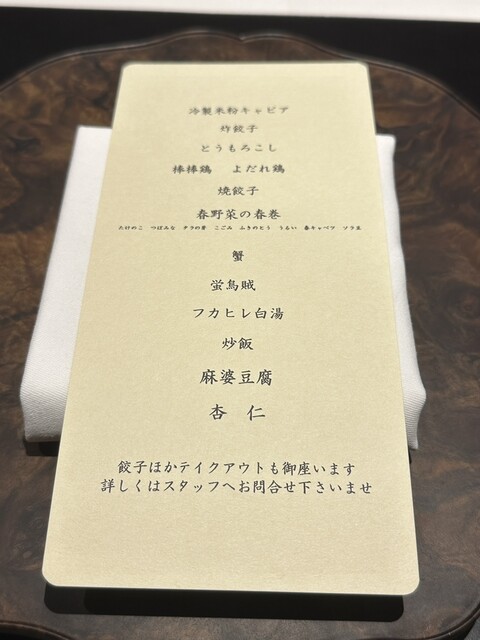 冷製米粉キャビア
炸餃子
とうもろこし
棒棒鶏　よだれ鶏
焼餃子
春野菜の春巻
たけのこ　つぼみな　タラの芽　こごみ　ふきのとう　うるい　春キャベツ　ソラ豆
蟹
蛍烏賊
フカヒレ白湯
炒飯
麻婆豆腐
杏　仁
餃子ほかテイクアウトも御座います
詳しくはスタッフへお問合せ下さいませ